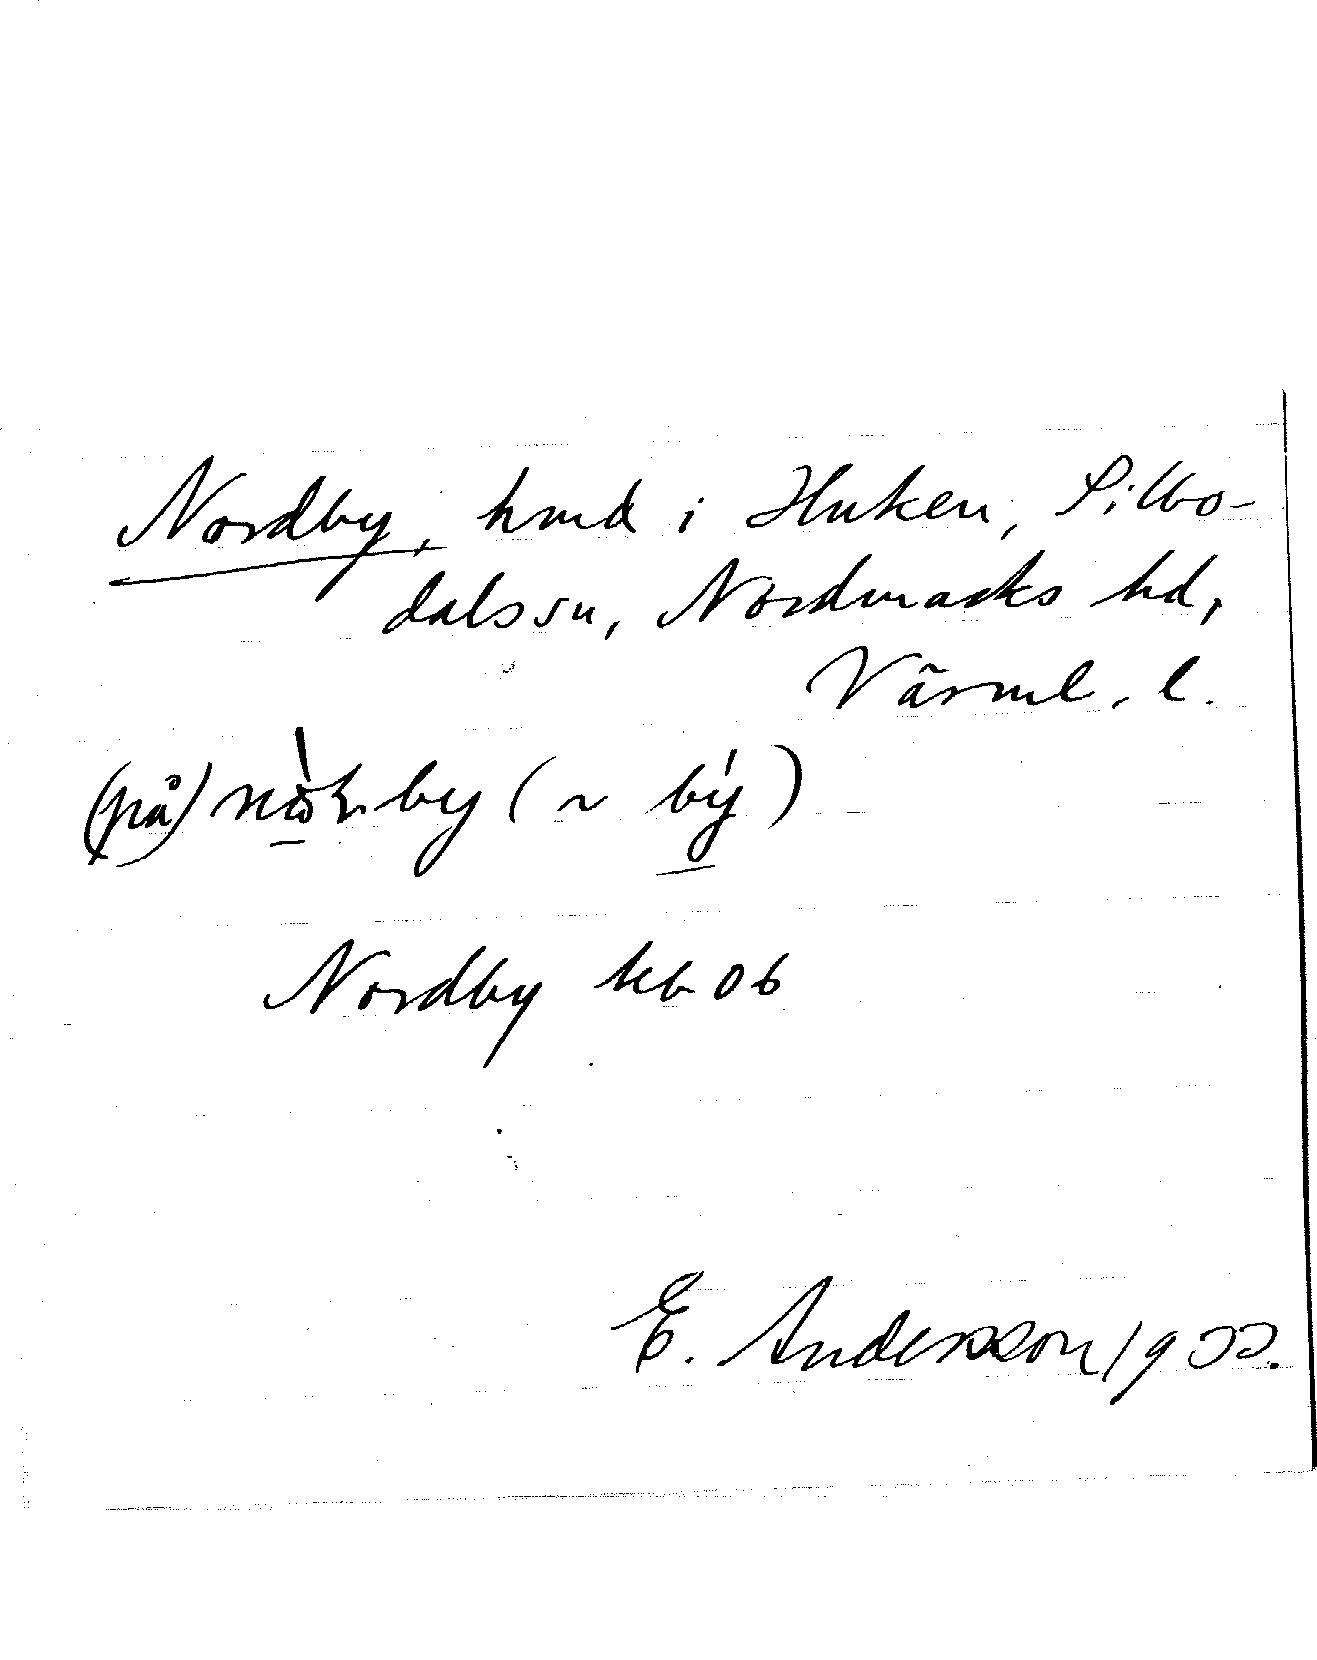 Nordby, hmd i Huken, Silbo-
dals sn, Nordmarks hd,
Värml. l.
(på) by (~ bý)
Nordby kb 06
E. Andersson 1933.